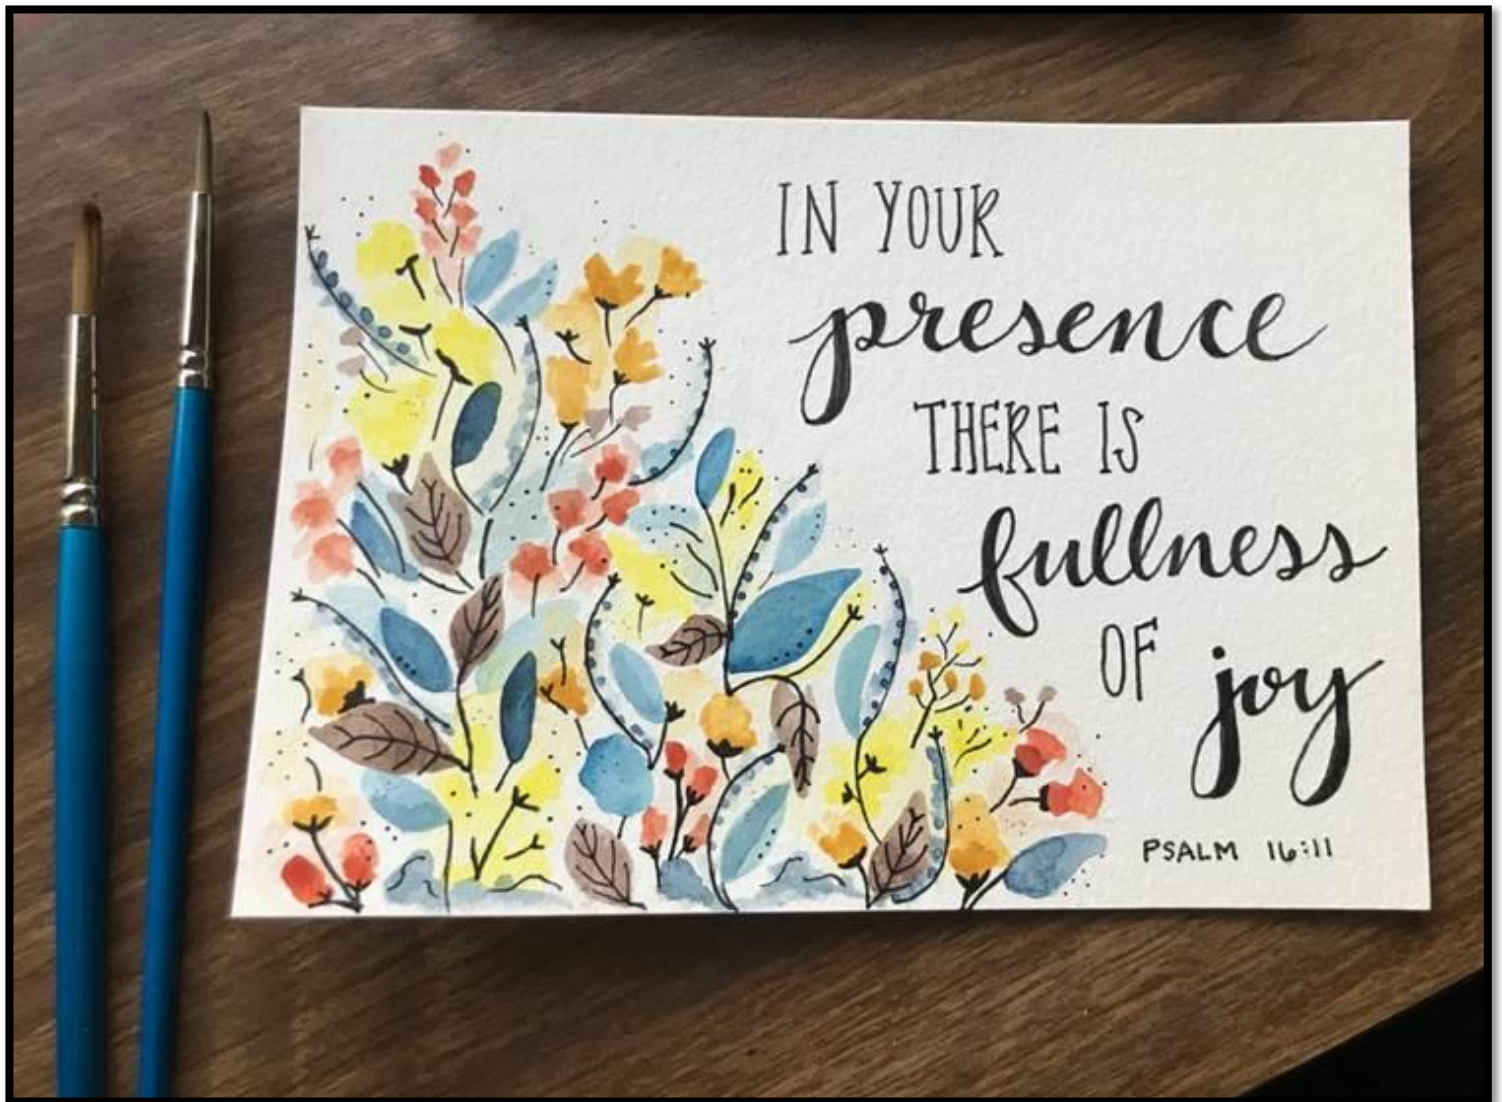 IN YOUR
presence
THERE IS
fullness
OF joy
PSALM 16:11